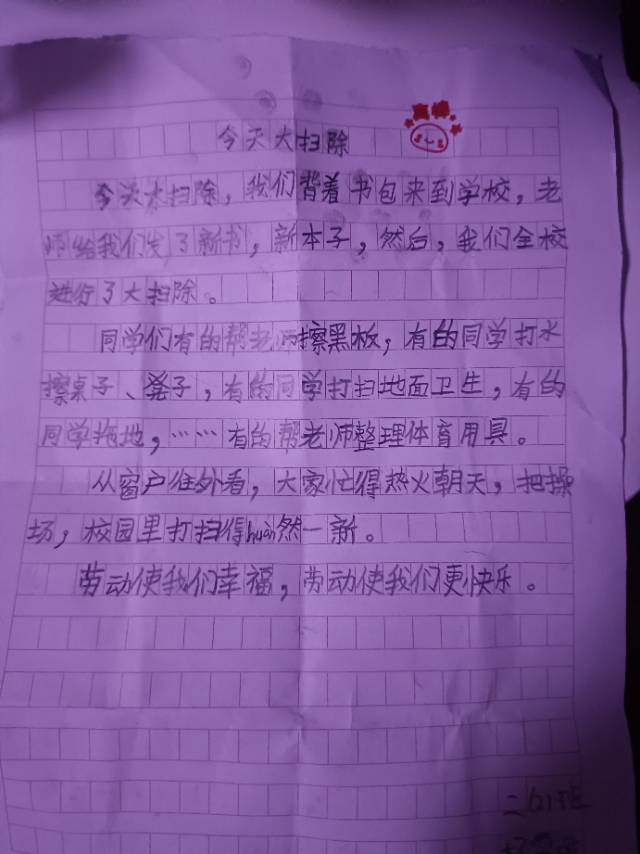 今天大扫除
今天大扫除，我们背着书包来到学校，老
师给我们发了新书，新本子，然后，我们全校
进行了大扫除。
同学们有的帮老师擦黑板，有的同学打水
擦桌子、凳子，有的同学打扫地面卫生，有的
同学拖地，……有的帮老师整理体育用具。
从窗户往外看，大家忙得热火朝天，把操
场，校园里打扫得huàn然一新。
劳动使我们幸福，劳动使我们更快乐。